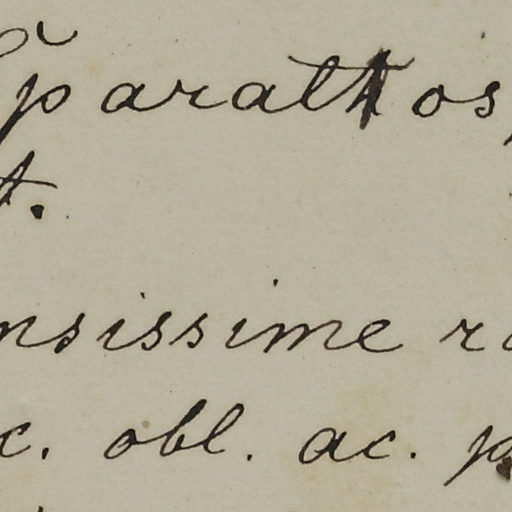 parattos,
t.
nsissime r
c. obl. ac. p